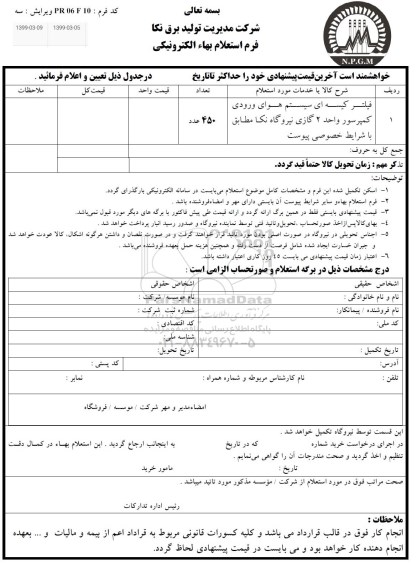 بسمه تعالی
کد فرم : PR 06 F 10 ویرایش : سه
1399-03-09
1399-03-05
شرکت مدیریت تولید برق نکا
فرم استعلام بهاء الکترونیکی
N.P.G.M
خواهشمند است آخرین قیمت پیشنهادی خود را حداکثر تا تاریخ درجدول ذیل تعیین و اعلام فرمائید .
ردیف شرح کالا یا خدمات مورد استعلام تعداد قیمت واحد قیمت کل ملاحظات
۱ فیلتر کیسه ای سیستم هوای ورودی کمپرسور واحد ۲ گازی نیروگاه نکا مطابق با شرایط خصوصی پیوست ۴۵۰ عدد
جمع کل به حروف:
تذکر مهم : زمان تحویل کالا حتماً قید گردد.
توضیحات:
۱- اسکن تکمیل شده این فرم و مشخصات کامل موضوع استعلام می‌بایست در سامانه الکترونیکی بارگذاری گردد.
۲- فرم استعلام بهاء‌و سایر شرایط پیوست آن بایستی دارای مهر و امضاء‌فروشنده باشد .
۳- قیمت پیشنهادی بایستی فقط در همین برگ ارائه گردد و ارائه قیمت طی پیش فاکتور یا برگه های دیگر مورد قبول نمی‌باشد.
۴- بهای‌کالاپس‌ازاخذ صورتحساب ،تحویل‌وتائید فنی توسط نماینده نیروگاه و صدور رسید انبار پرداخت خواهد شد .
۵- اجناس تحویلی در نیروگاه در صورت اصلی بودن مورد تائید قرار خواهند گرفت و در صورت نقصان و داشتن هرگونه اشکال، کالا عودت خواهد شد
و جبران خسارت ایجاد شده شامل فرصت از دست رفته و همچنین هزینه حمل بعهده فروشنده می‌باشد .
۶- اعتبار زمان قیمت پیشنهادی می بایست ۴۵ روز کاری اعتبار داشته باشد.
درج مشخصات ذیل در برگه استعلام و صورتحساب الزامی است :
اشخاص حقیقی اشخاص حقوقی
نام و نام خانوادگی : نام موسسه/ شرکت :
نام فروشنده / پیمانکار: شماره ثبت شرکت :
کد ملی: کد اقتصادی :
شناسه ملی:
تاریخ تکمیل : تاریخ تحویل:
آدرس: کد پستی :
تلفن : نام کارشناس مربوطه و شماره همراه : نمابر :
امضاء‌مدیر و مهر شرکت / موسسه / فروشگاه
ParsNamadData
۰۲۱-۸۸۳۴۹۶۷۰-۵
این قسمت توسط نیروگاه تکمیل خواهد شد .
در اجرای درخواست خرید شماره که در تاریخ به اینجانب ارجاع گردید . این استعلام بهاء در کمال دقت
تنظیم و اخذ گردید و صحت مندرجات آن را گواهی می‌نمایم .
تاریخ : مامور خرید
صحت مراتب فوق در مورد استعلام از شرکت / مؤسسه مذکور مورد تائید میباشد .
رئیس اداره تدارکات
ملاحظات :
انجام کار فوق در قالب قرارداد می باشد و کلیه کسورات قانونی مربوط به قراداد اعم از بیمه و مالیات و ... بعهده
انجام دهنده کار خواهد بود و می بایست در قیمت پیشنهادی لحاظ گردد.